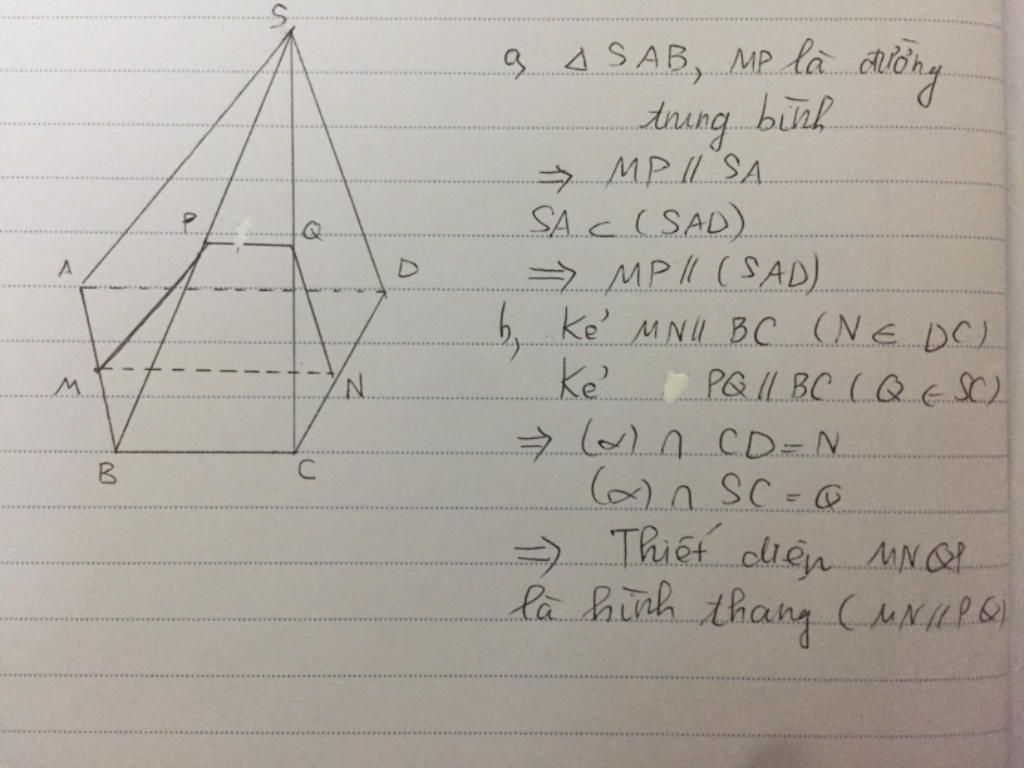 S
a, Δ SAB, MP là đường
trung bình
⇒ MP // SA
P
Q
SA ⊂ (SAD)
A
D
⇒ MP // (SAD)
b, Kẻ MN // BC (N ∈ DC)
M
N
Kẻ PQ // BC (Q ∈ SC)
⇒ (α) ∩ CD = N
B
C
(α) ∩ SC = Q
⇒ Thiết diện MNQP
là hình thang (MN // PQ)